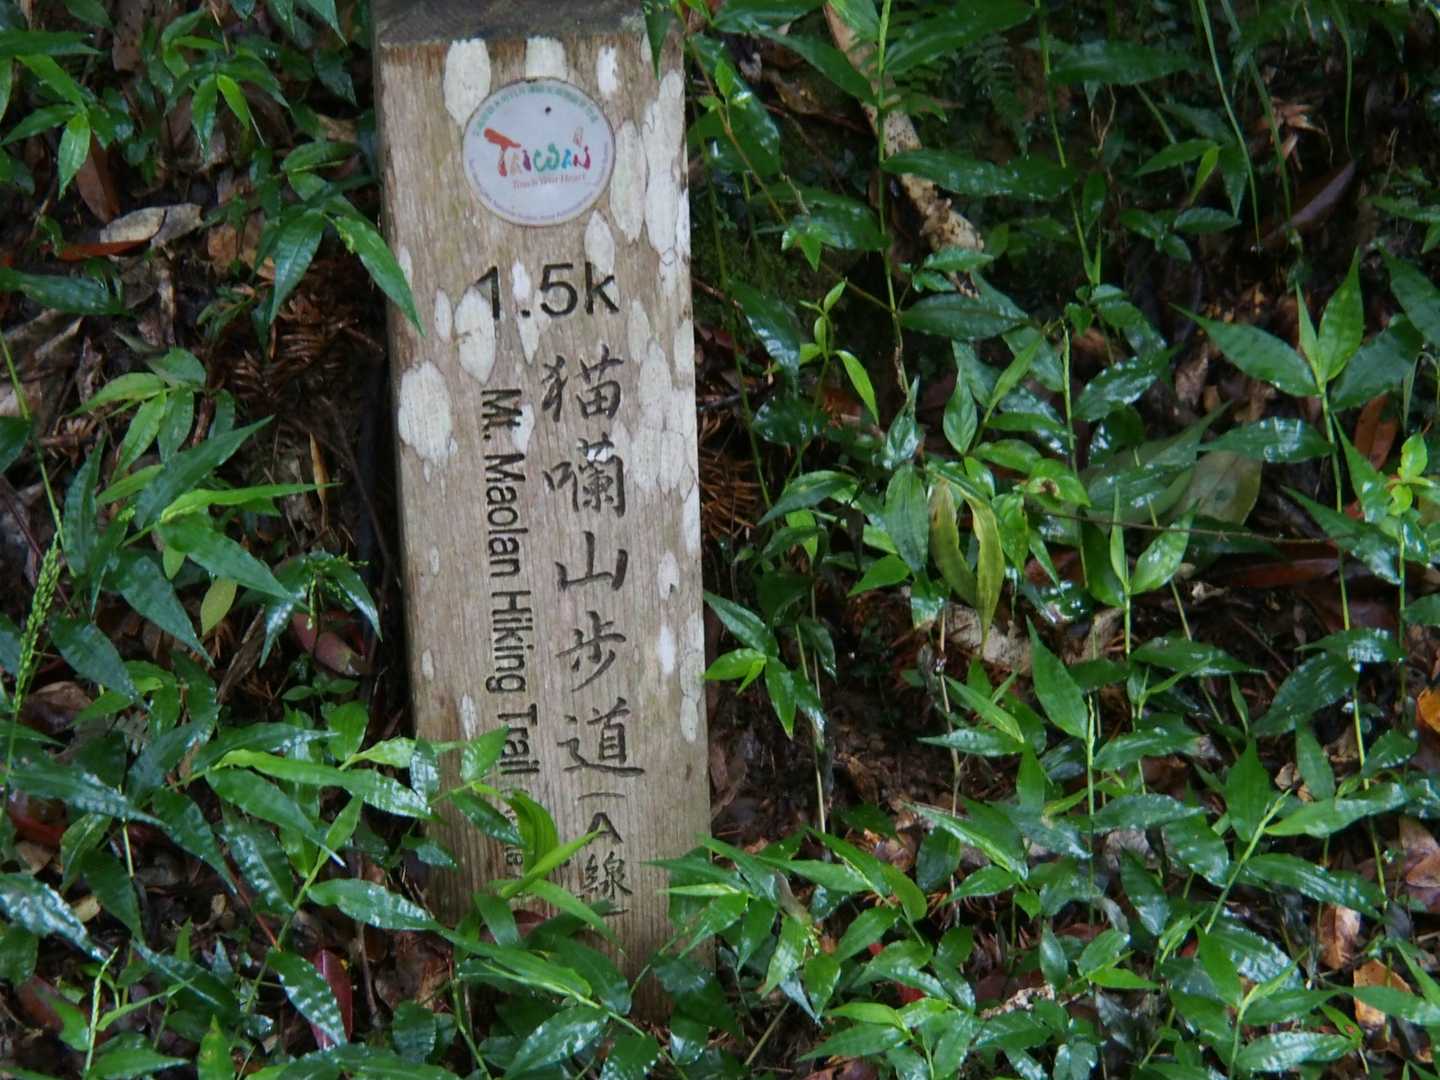 TAIWAN
Touch Your Heart
1.5k
猫囒山步道(A線)
Mt. Maolan Hiking Trail